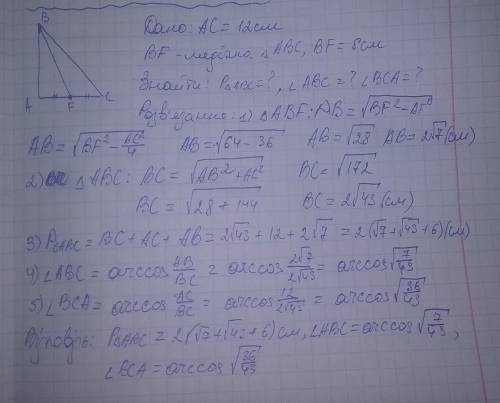 B
Дано: AC = 12см
BF - медіана △ABC, BF = 8см
A F C
Знайти: P△ABC = ?, ∠ABC = ? ∠BCA = ?
Розв'язання: 1) △ABF: AB = √(BF² - AF²)
AB = √(BF² - AC²/4) AB = √(64 - 36) AB = √28 AB = 2√7 (см)
2) △ABC: BC = √(AB² + AC²) BC = √172
BC = √(28 + 144) BC = 2√43 (см)
3) P△ABC = BC + AC + AB = 2√43 + 12 + 2√7 = 2(√7 + √43 + 6)(см)
4) ∠ABC = arccos AB/BC = arccos 2√7/2√43 = arccos √(7/43)
5) ∠BCA = arccos AC/BC = arccos 12/2√43 = arccos √(36/43)
Відповідь: P△ABC = 2(√7 + √43 + 6) см, ∠ABC = arccos √(7/43),
∠BCA = arccos √(36/43)